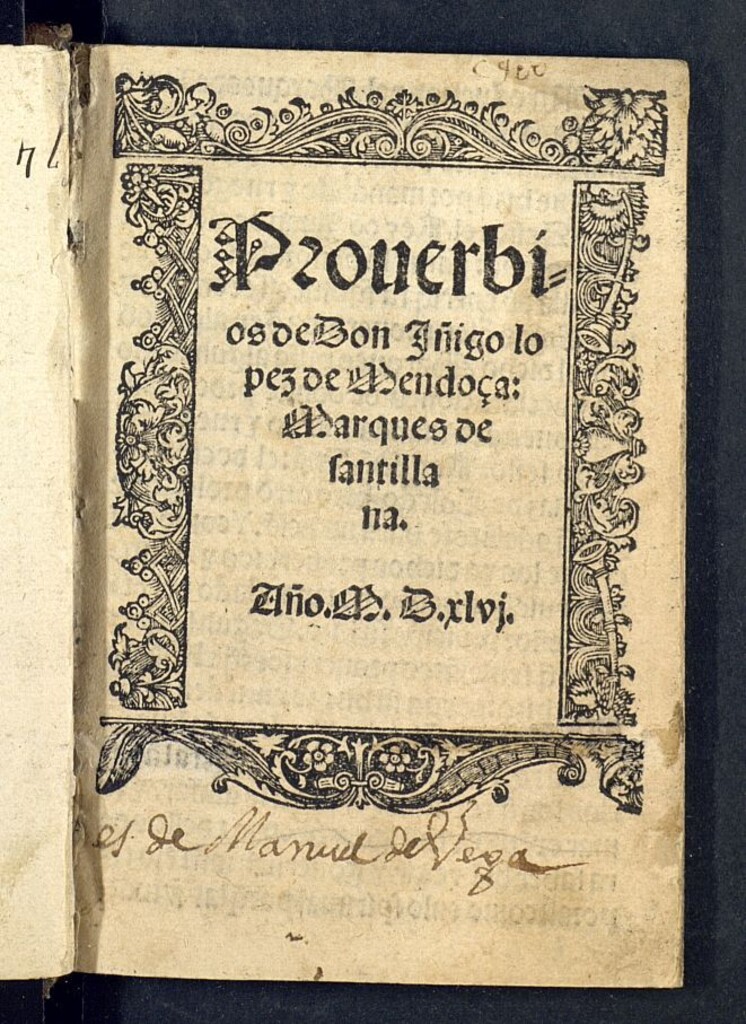 Prouerbi=
os de Don Iñigo lo
pez de Mendoça:
Marques de
santilla
na.
Año. M. D. xlvj.
es de Manuel de Vega